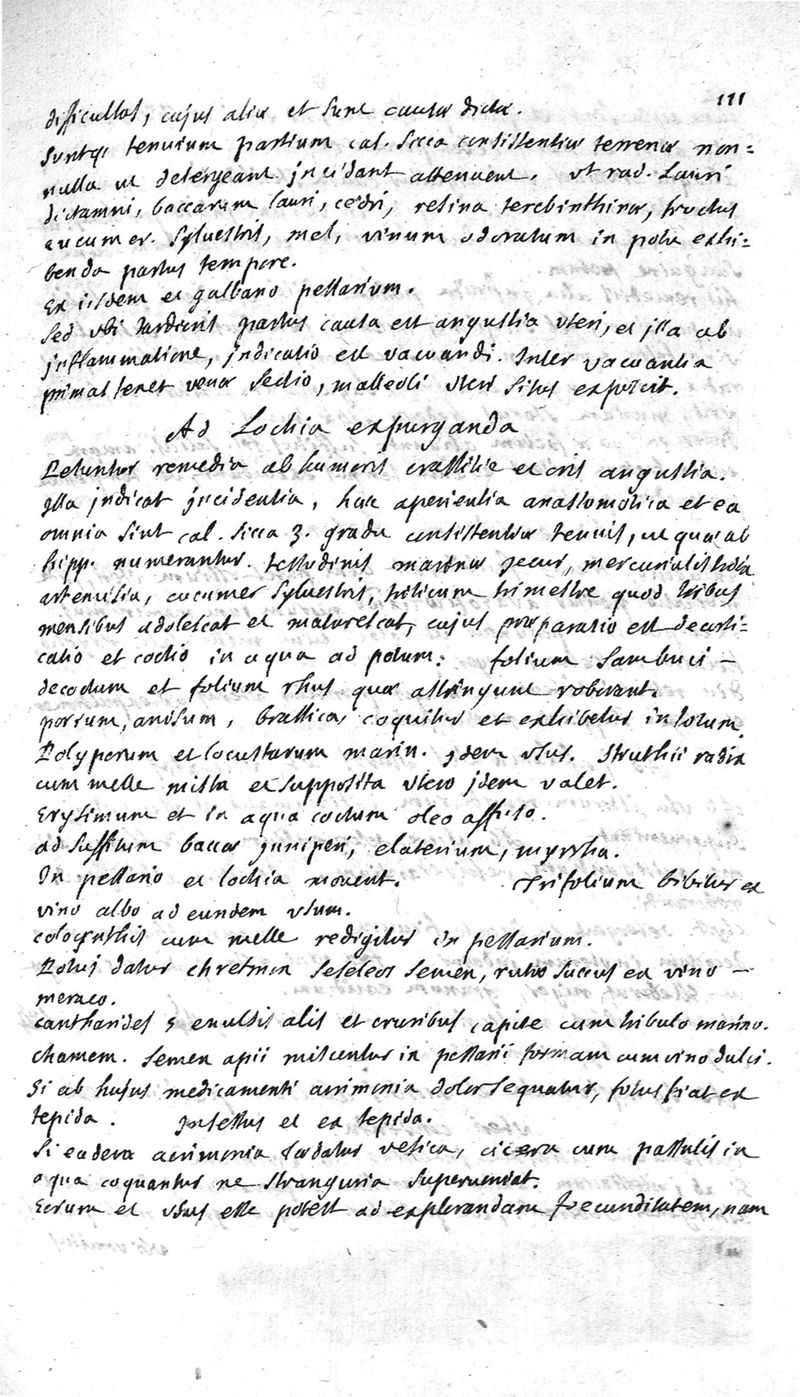 111
difficultas, cujus aliæ et sunt causæ dictæ.
suntq; tenuium partium cal. sicca consistentiæ terrenæ non=
nulla ut detergeant jncidant attenuent. ut rad. Lauri
dictamni, baccarum lauri, cedri, resina terebinthinæ, fructus
cucumer. sylvestris, mel, vinum odoratum in potu exhi-
benda partus tempore.
Ex iisdem et galbano pessarium.
Sed ubi tarditatis partus causa est angustia uteri, et jlla ab
jnflammatione, jndicatio est vacuandi. Inter vacuantia
primas tenet venæ sectio, malleoli uteri situs exposcit.
Ad Lochia expurganda
Petuntur remedia ab humoris crassitie et oris angustia.
Illa jndicat jncidentia, hæc aperientia anastomotica et ea
omnia sint cal. sicca 3. gradu consistentiæ tenuis, ut quæ ab
hipp. numerantur. testudinis marinæ jecur, mercurialis
artemisia, cucumer sylvestris, triticum trimestre quod tribus
mensibus adolescat et maturescat, cujus præparatio est decorti-
catio et coctio in aqua ad potum: folium sambuci -
decoctum et folium rhus quæ astringunt roborant.
porrum, anisum, brassica, coquitur et exhibetur in totum.
Polyporum et locustarum marin. jdem usus. Struthii radix
cum melle mista et supposita utero jdem valet.
Erysimum et in aqua coctum oleo
ad suffitum baccæ juniperi, elaterium, myrrha.
In pessario et lochia movent. Trifolium bibitur ex
vino albo ad eundem usum.
colocynthis cum melle redigitur in pessarium.
Potui datur seseleos semen, rutæ succus ex vino -
meraco.
cantharides 5 evulsis alis et cruribus capite cum tribulo marino.
chamem. semen apii miscentur in pessarii formam cum vino dulci.
Si ab hujus medicamenti acrimonia dolor sequatur, fotus fiat ex
tepida. Insessus et ex tepida.
Si eadem acrimonia lædatur vesica, cicera cum passulis in
aqua coquantur ne stranguria superveniat.
Eorum et usus esse potest ad explorandam fœcunditatem, nam